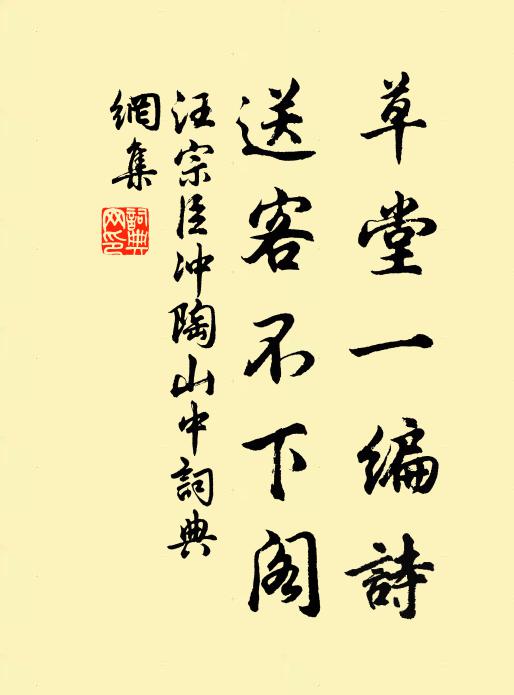 草堂一编詩
送客不下阁
汪宗臣冲陶山中詞典
網集
詞典網印